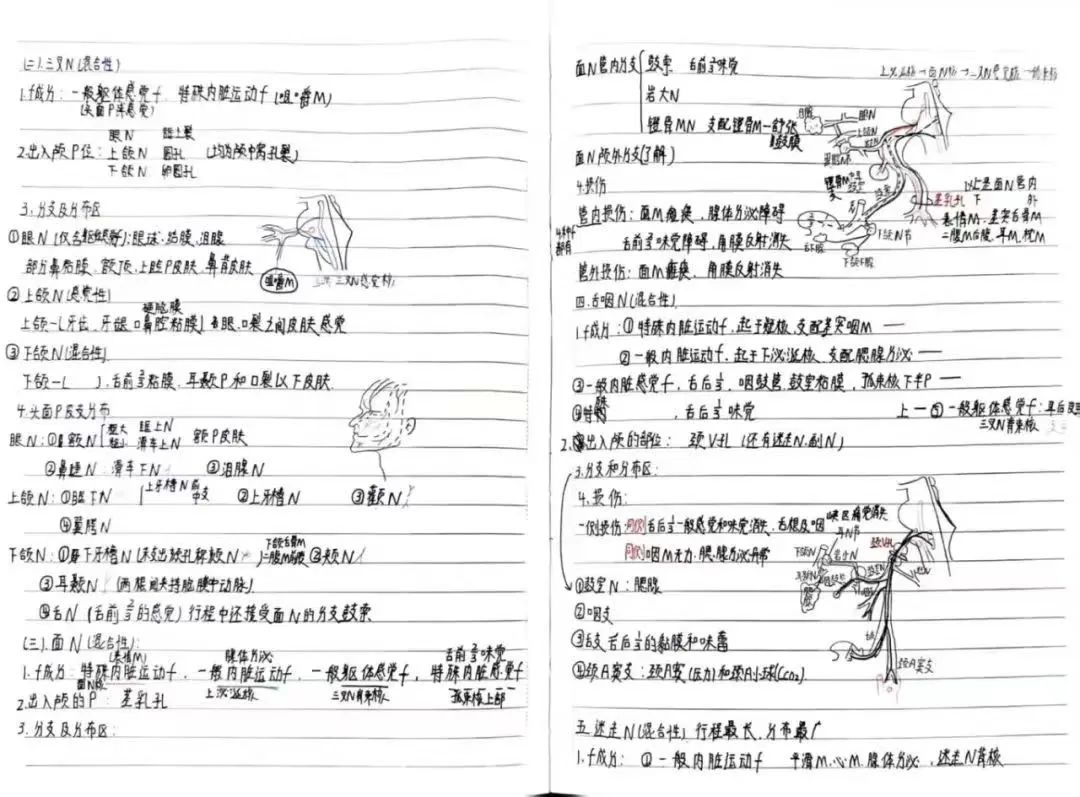 (二).三叉N(混合性)
1.f成分:一般躯体感觉f,特殊内脏运动f(咀嚼M)
(头面P肤感觉)
眼N 眶上裂
2.出入颅P位:上颌N 圆孔 (均为颅中窝孔裂)
下颌N 卵圆孔
3.分支及分布区
①眼N(仅含躯体感觉):眼球.结膜.泪腺
部分鼻粘膜.额顶.上睑P皮肤.鼻背皮肤
咀嚼M
三叉N感觉核
②上颌N(感觉性)
硬脑膜
上颌-(牙齿.牙龈.口鼻腔粘膜) 眼.口裂之间皮肤感觉
③下颌N(混合性)
下颌-( ).舌前⅔粘膜.耳颞P和口裂以下皮肤
4.头面P皮支分布
眼N:①额N 粗大 眶上N 额P皮肤
较小 滑车上N
②鼻睫N:滑车下N ③泪腺N
上颌N:①眶下N 上牙槽N前中支 ②上牙槽N ③颧N
④翼腭N
下颌N:①下牙槽N(末支出颏孔称颏N) 下颌舌骨M 二腹M前腹 ②颊N
③耳颞N (两根间夹持脑膜中动脉)
④舌N(舌前⅔的感觉)行程中还接受面N的分支鼓索
(三).面N(混合性):
(表情M) 腺体分泌 舌前⅔味觉
1.f成分:特殊内脏运动f,一般内脏运动f,一般躯体感觉f,特殊内脏感觉f
面N核 上泌涎核 三叉N脊束核 孤束核上部
2.出入颅的P:茎乳孔
3.分支及分布区:
面N管内分支 鼓索 舌前⅔味觉
岩大N
镫骨MN 支配镫骨M—鼓膜
面N颅外分支(了解)
4.损伤
管内损伤:面M瘫痪,腺体分泌障碍
舌前⅔味觉障碍,角膜反射消失
管外损伤:面M瘫痪、角膜反射消失
泪腺
眼N
上颌N
鼓索
茎乳孔
以上是面N管内
下 外
表情M.茎突舌骨M
二腹M后腹.耳M.枕M
下颌N节
舌下腺
下颌下腺
四.舌咽N(混合性)
1.f成分:①特殊内脏运动f,起于疑核,支配茎突咽M —
②一般内脏运动f,起于下泌涎核,支配腮腺分泌 —
③一般内脏感觉f,舌后⅓,咽鼓管,鼓室粘膜,孤束核下P —
④特内脏 ,舌后⅓味觉 上—⑤一般躯体感觉f:耳后皮
三叉N脊束核
2.出入颅的部位:颈V孔(还有迷走N.副N)
3.分支和分布区:
4.损伤:
一侧损伤:同侧舌后⅓一般感觉和味觉消失,舌根及咽峡区痛觉消失
同侧咽M无力.腮腺分泌异常
①鼓室N:腮腺
②咽支
③舌支 舌后⅓的黏膜和味蕾
④颈A窦支:颈A窦(压力)和颈A小球(CO₂)
颈V孔
耳颞N
岩小N
鼓室N
腮腺
颈A窦支
五.迷走N(混合性) 行程最长.分布最广
1.f成分:①一般内脏运动f 平滑M.心M.腺体分泌,迷走N背核